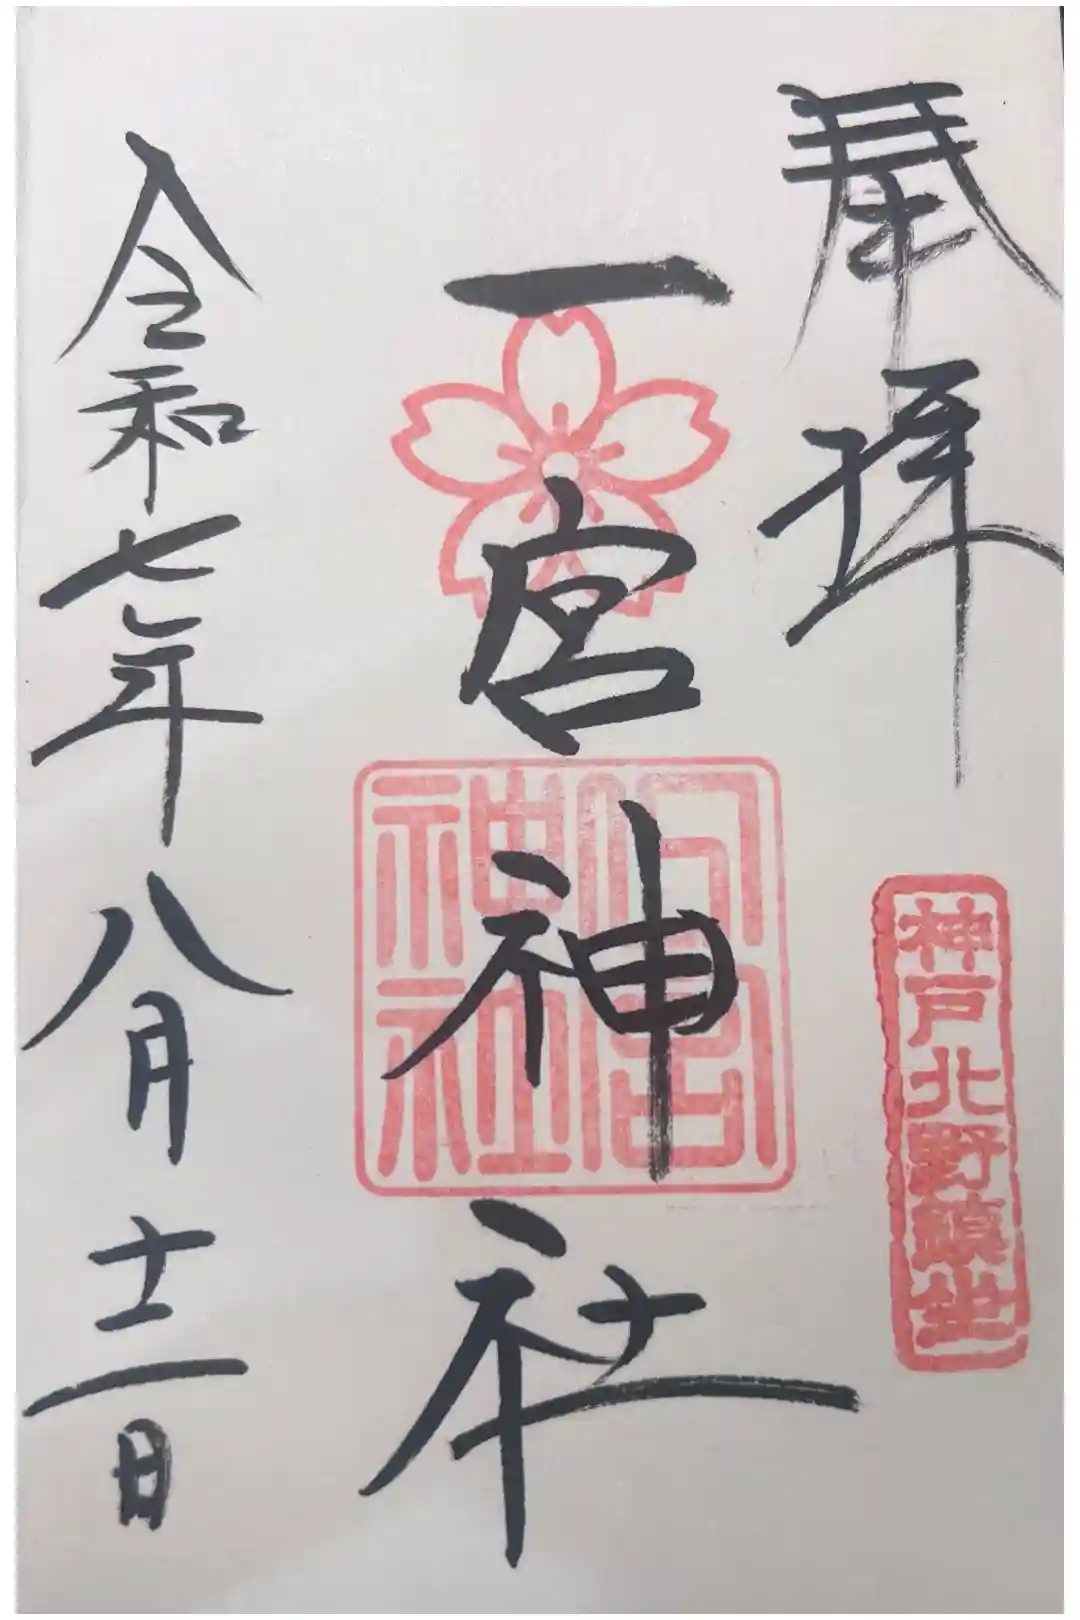 奉拝
神戸北野鎮座
一宮神社
一宮神社
令和七年八月十二日